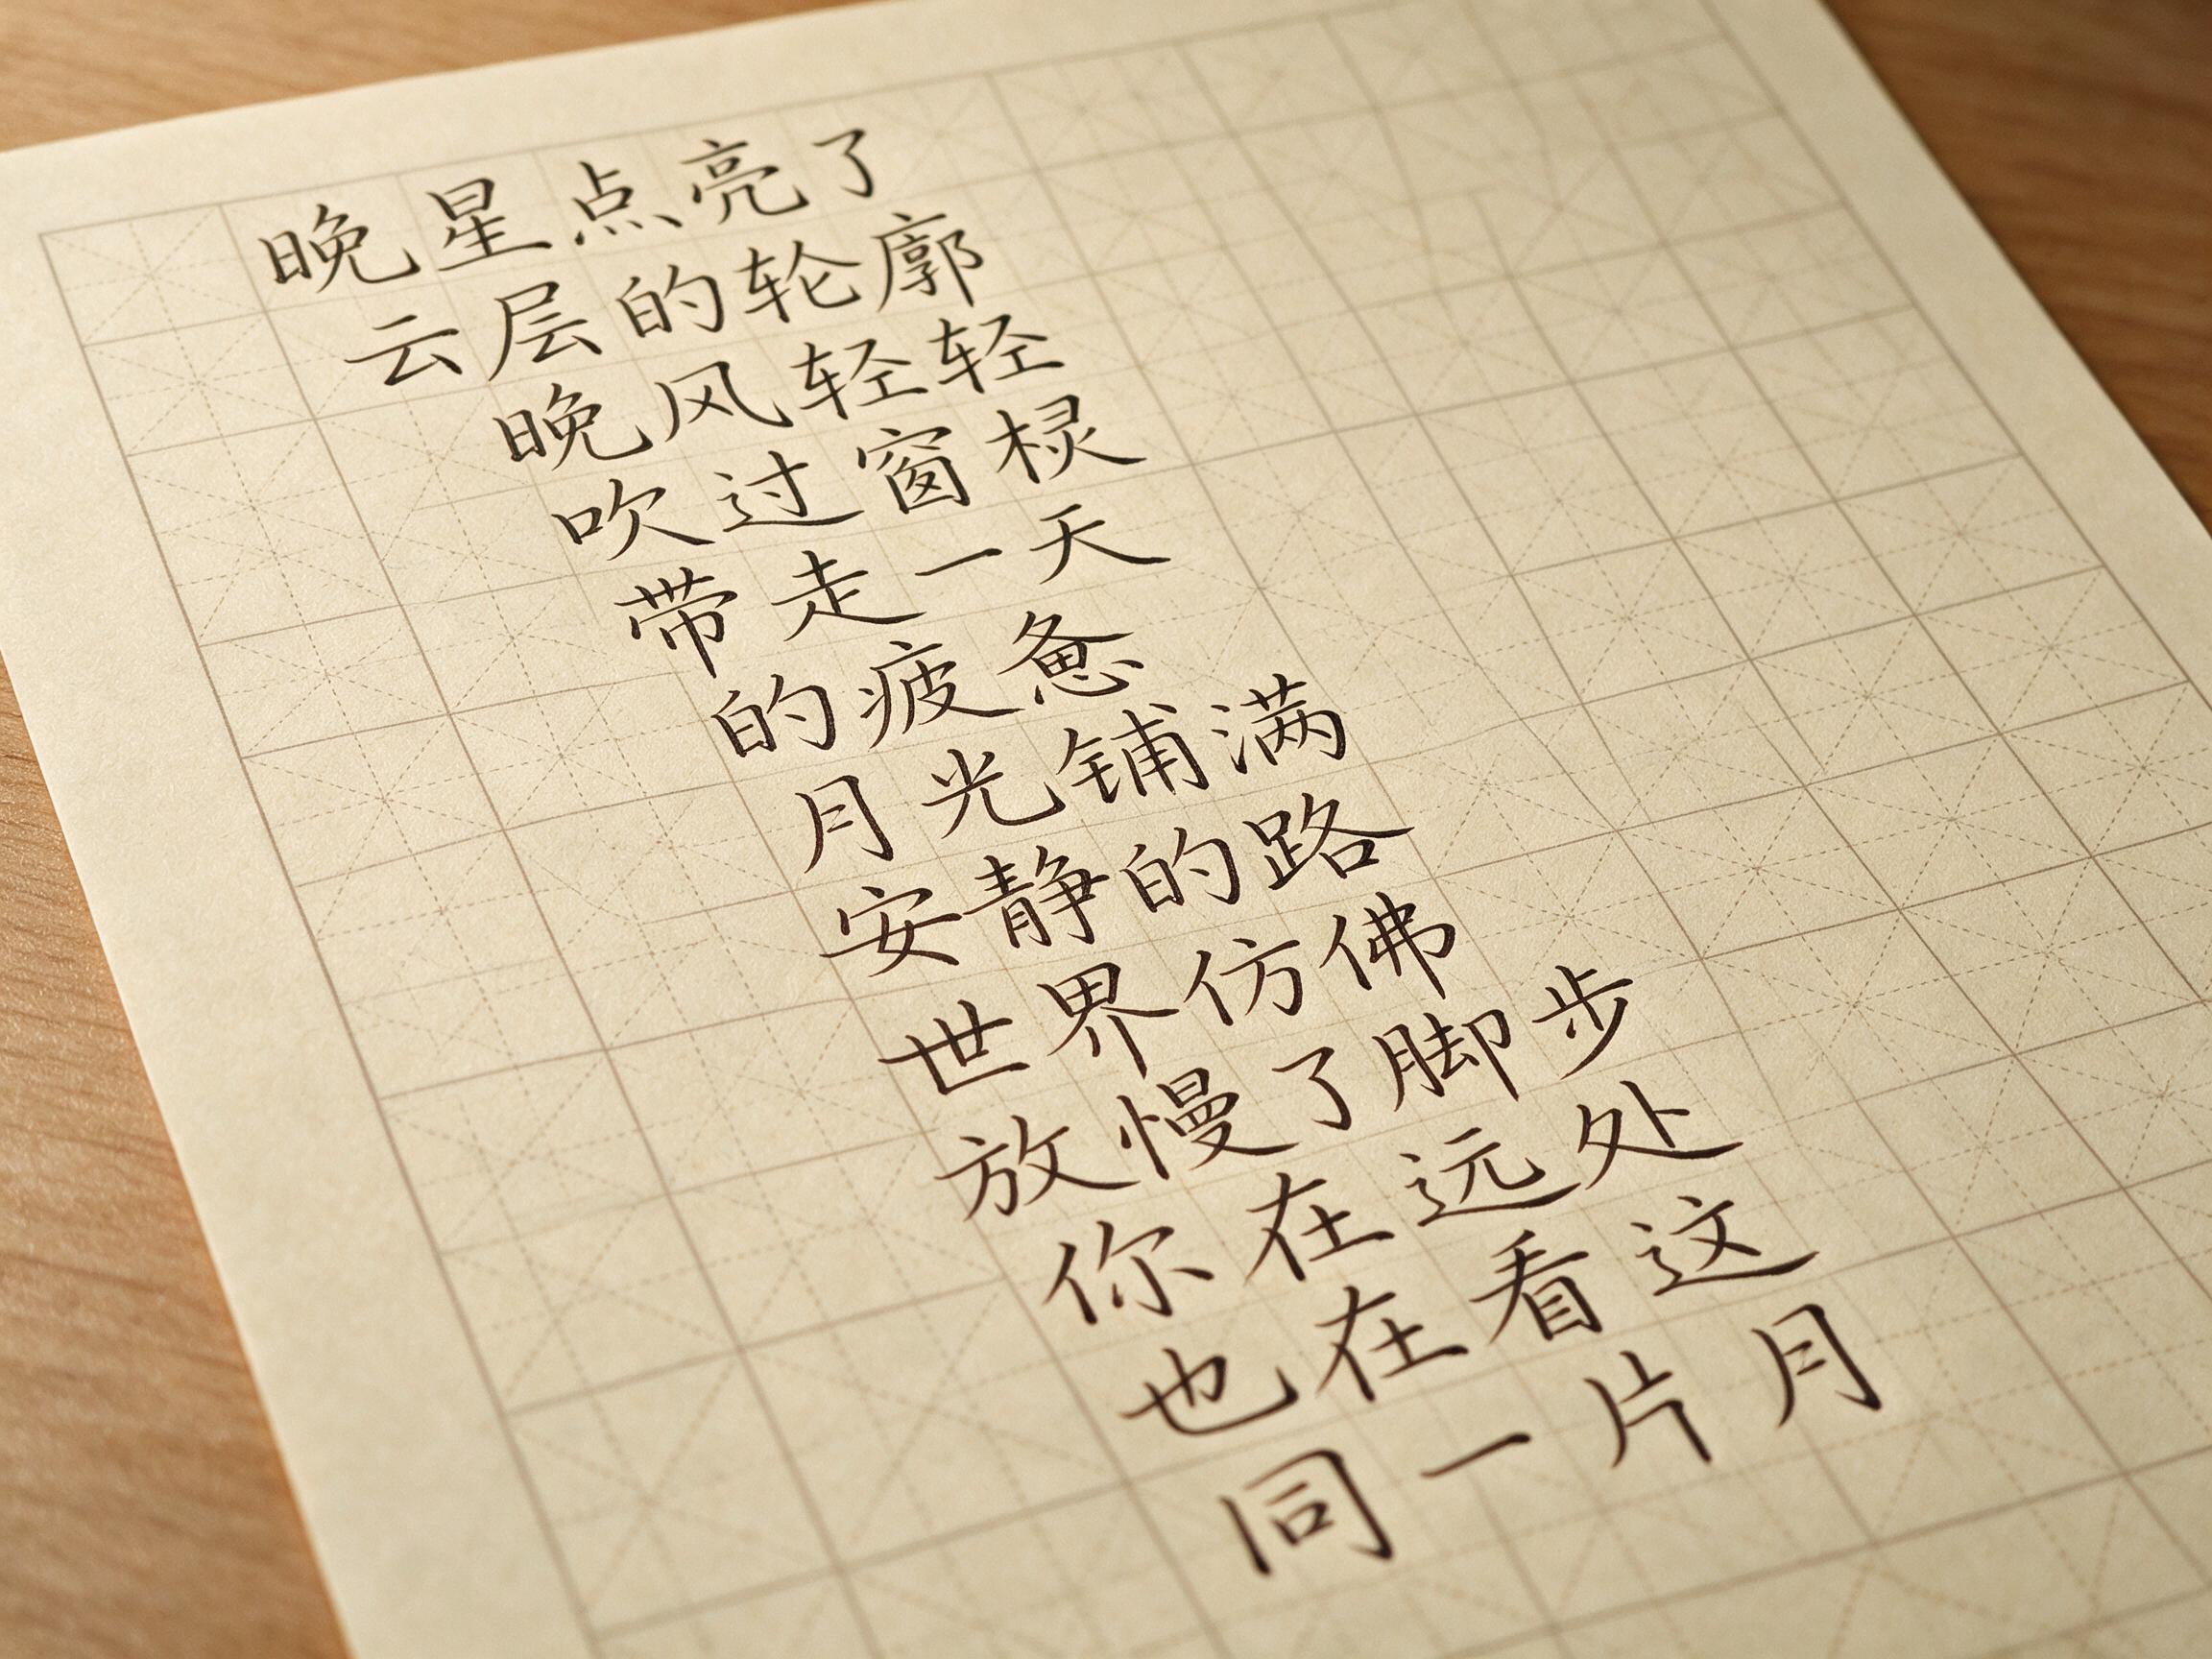 晚星点亮了
云层的轮廓
晚风轻轻
吹过窗棂
带走一天
的疲惫
月光铺满
安静的路
世界仿佛
放慢了脚步
你在远处
也在看这
同一片月